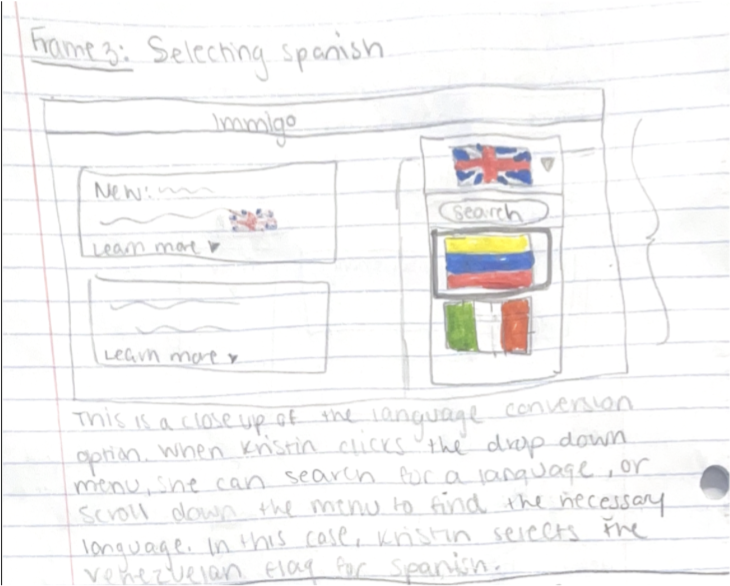 Frame 3: Selecting spanish
Immigo
New:
Learn more
Learn more
search
This is a close up of the language conversion
option. When Kristin clicks the drop down
menu, she can search for a language, or
scroll down the menu to find the necessary
language. In this case, Kristin selects the
venezuelan flag for spanish.